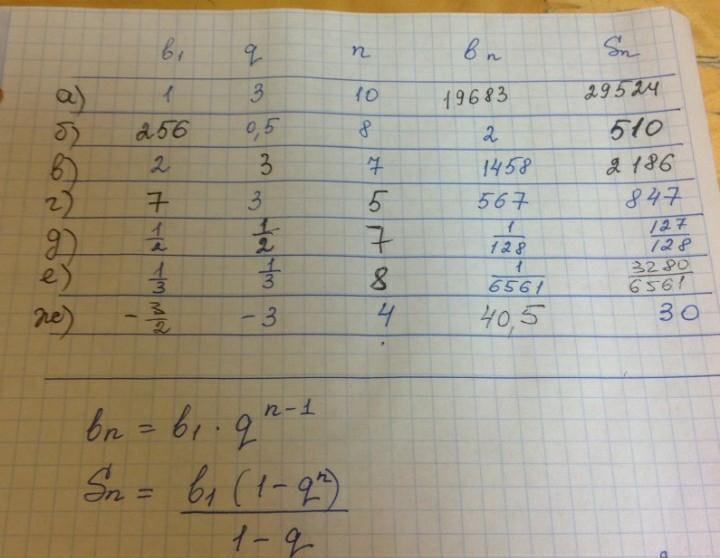 b₁ q n bₙ Sₙ
а) 1 3 10 19683 29524
б) 256 0,5 8 2 510
в) 2 3 7 1458 2186
г) 7 3 5 567 847
д) 1/2 1/2 7 1/128 127/128
е) 1/3 1/3 8 1/6561 3280/6561
ж) -3/2 -3 4 40,5 30
bₙ = b₁ · qⁿ⁻¹
Sₙ = b₁ (1 - qⁿ) / 1 - q